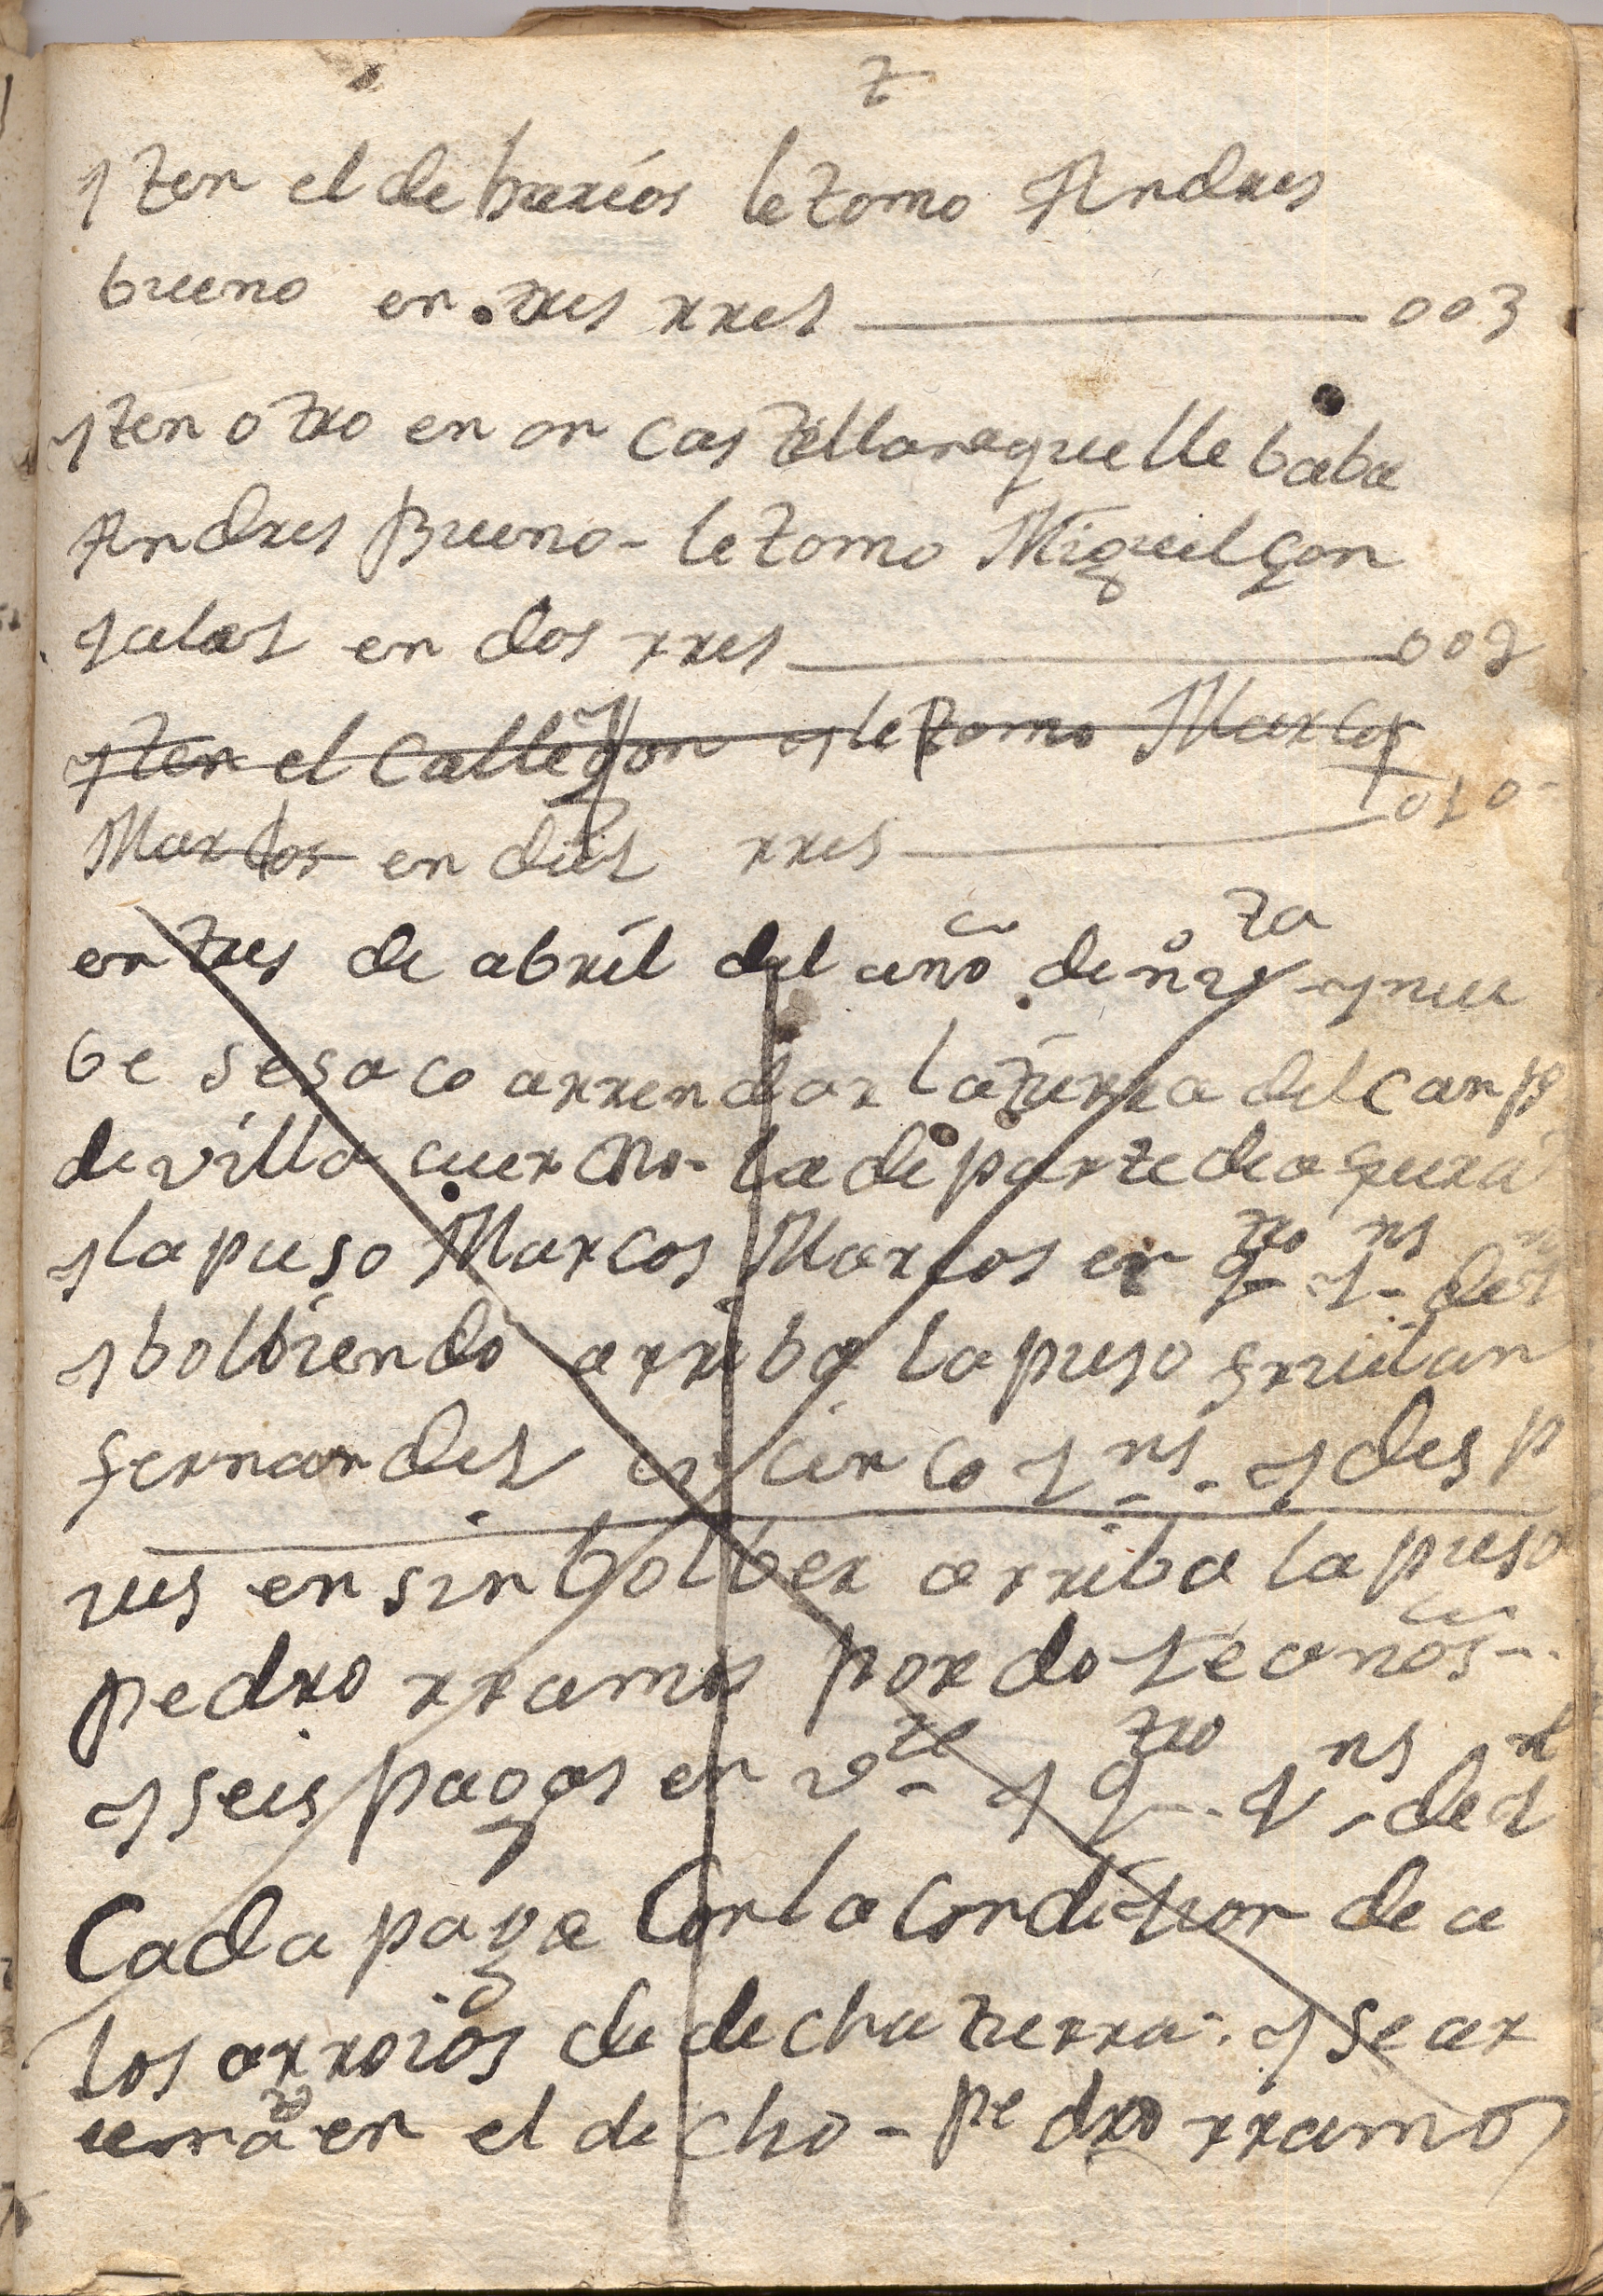 yten el de barrios le tomo Andres
bueno en tres rres 003
yten otro en on castellanaquellebaba
Andres Bueno - le tomo Miguel gon
çalas en dos rres 002
yten el Callejon le tomo Marcos
Marcos en diez rres 010
en tres de abril del año de nta y nue
be se saco arrendar la tierra del camp
de villa cuerno - la de parte de a
y la puso Marcos Marcos en qtro qns de
y bolbiendo arriba la puso
fernandez en cinco qns y desp
ues en sin bolber arriba la puso
pedro rramos por dote años
y seis pagas en vte y qtro qns de
Cada paga Con la Condition de a
los arroios de decha tierra - y se ar
en el decho - pedro rramos